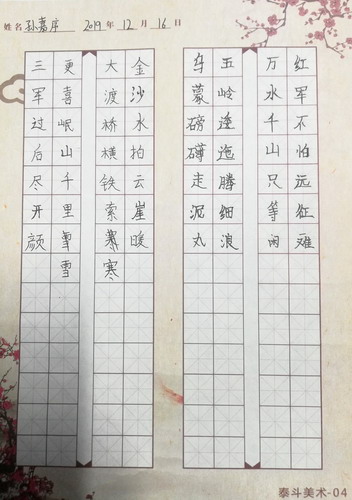 姓名 孙嘉序 2019年12月16日
红军不怕远征难
万水千山只等闲
五岭逶迤腾细浪
乌蒙磅礴走泥丸
金沙水拍云崖暖
大渡桥横铁索寒
更喜岷山千里雪
三军过后尽开颜
泰斗美术-04